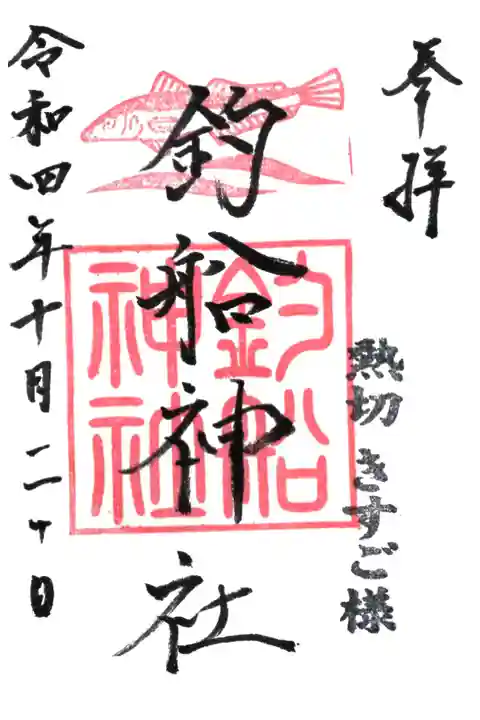 参拝
熱切 きすご様
釣船神社
釣船神社
令和四年十月二十日